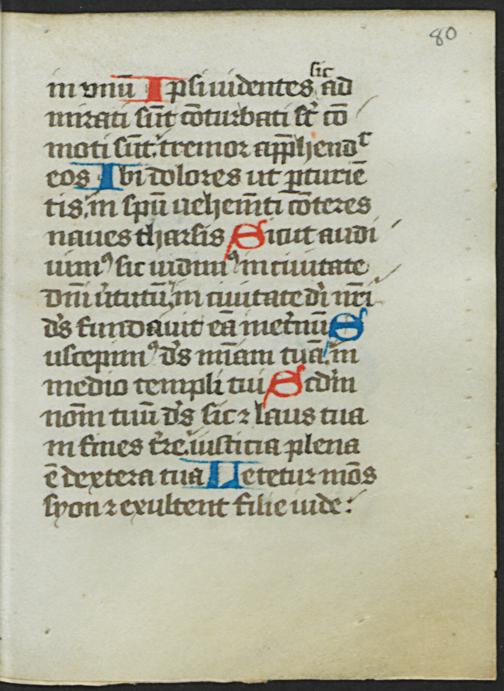 80
in vnū Ipsi uidentes sic ad
mirati sūt cōturbati st̄ cō
moti sūt: tremor app̄hend
eos Ibi dolores ut p̄turiē
tis, in spū uehem̄ti cōteres
naues tharsis Sicut audi
uim⁹ sic uidim⁹ in ciuitate
dn̄i ūtutū, in ciuitate dī nr̄i
d̄s fundauit eā in et̄nū S
uscepim⁹ d̄s mīam tuā, in
medio templi tui Scd̄m
nom̄ tuū d̄s sic ⁊ laus tua
in fines t̄re, iusticia plena
ē dextera tua Letetur mōs
syon ⁊ exultent filie iude: